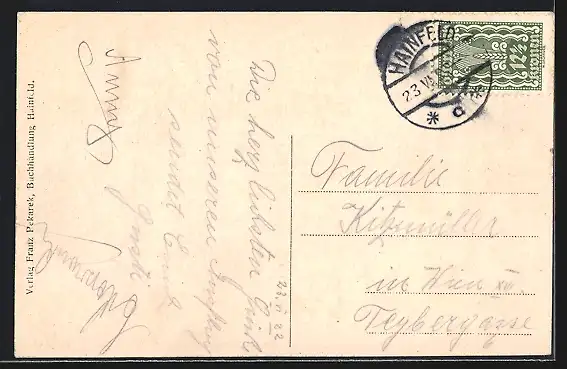 Verlag Franz Pekarek, Buchhandlung Hainfeld.
Die herzlichsten Grüße
von unserem Ausflug
sendet Euch
Gusti
Anny
23. VI 22
HAINFELD
23 VI
* c
12½
Familie
Kitzmüller
in Wien
Teybergasse